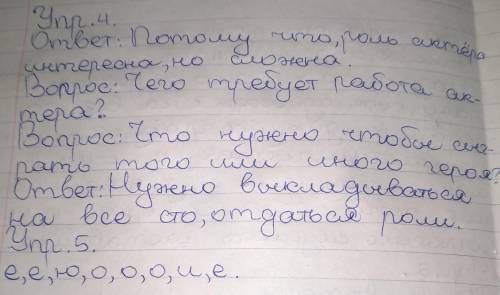 Упр.4.
Ответ: Потому что, роль актёра
интересна, но сложна.
Вопрос: Чего требует работа ак-
тера?
Вопрос: Что нужно чтобы сыг-
рать того или иного героя?
Ответ: Нужно выкладываться
на все сто, отдаться роли.
Упр.5.
е, е, ю, о, о, о, и, е.